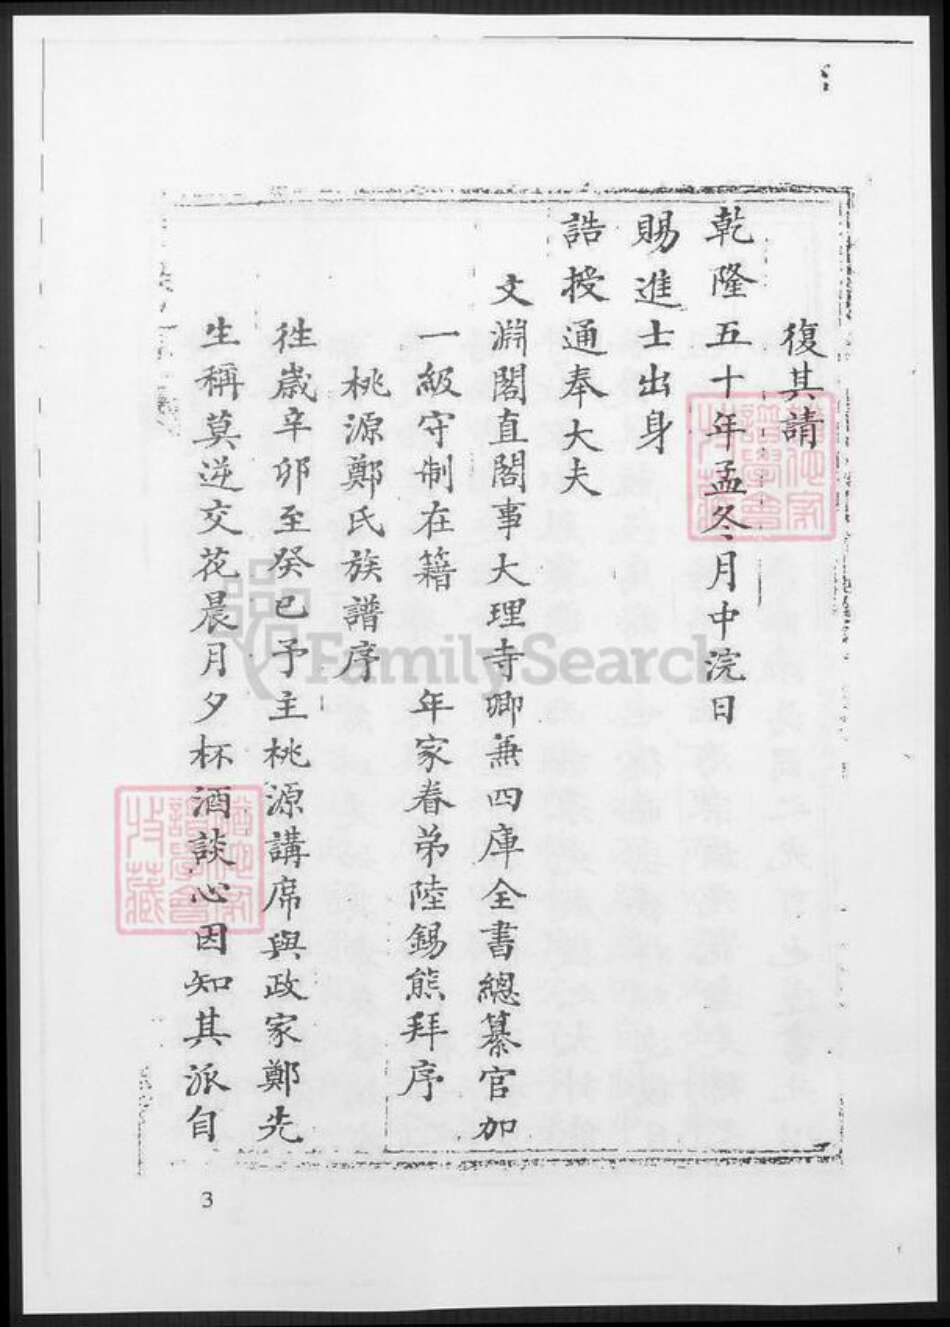 復其請
乾隆五十年孟冬月中浣日
賜進士出身
誥授通奉大夫
文淵閣直閣事大理寺卿兼四庫全書總纂官加
一級守制在籍 年家眷弟陸錫熊拜序
桃源鄭氏族譜序
徃歲辛卯至癸巳予主桃源講席與政家鄭先
生稱莫逆交花晨月夕杯酒談心因知其派自
3
FamilySearch